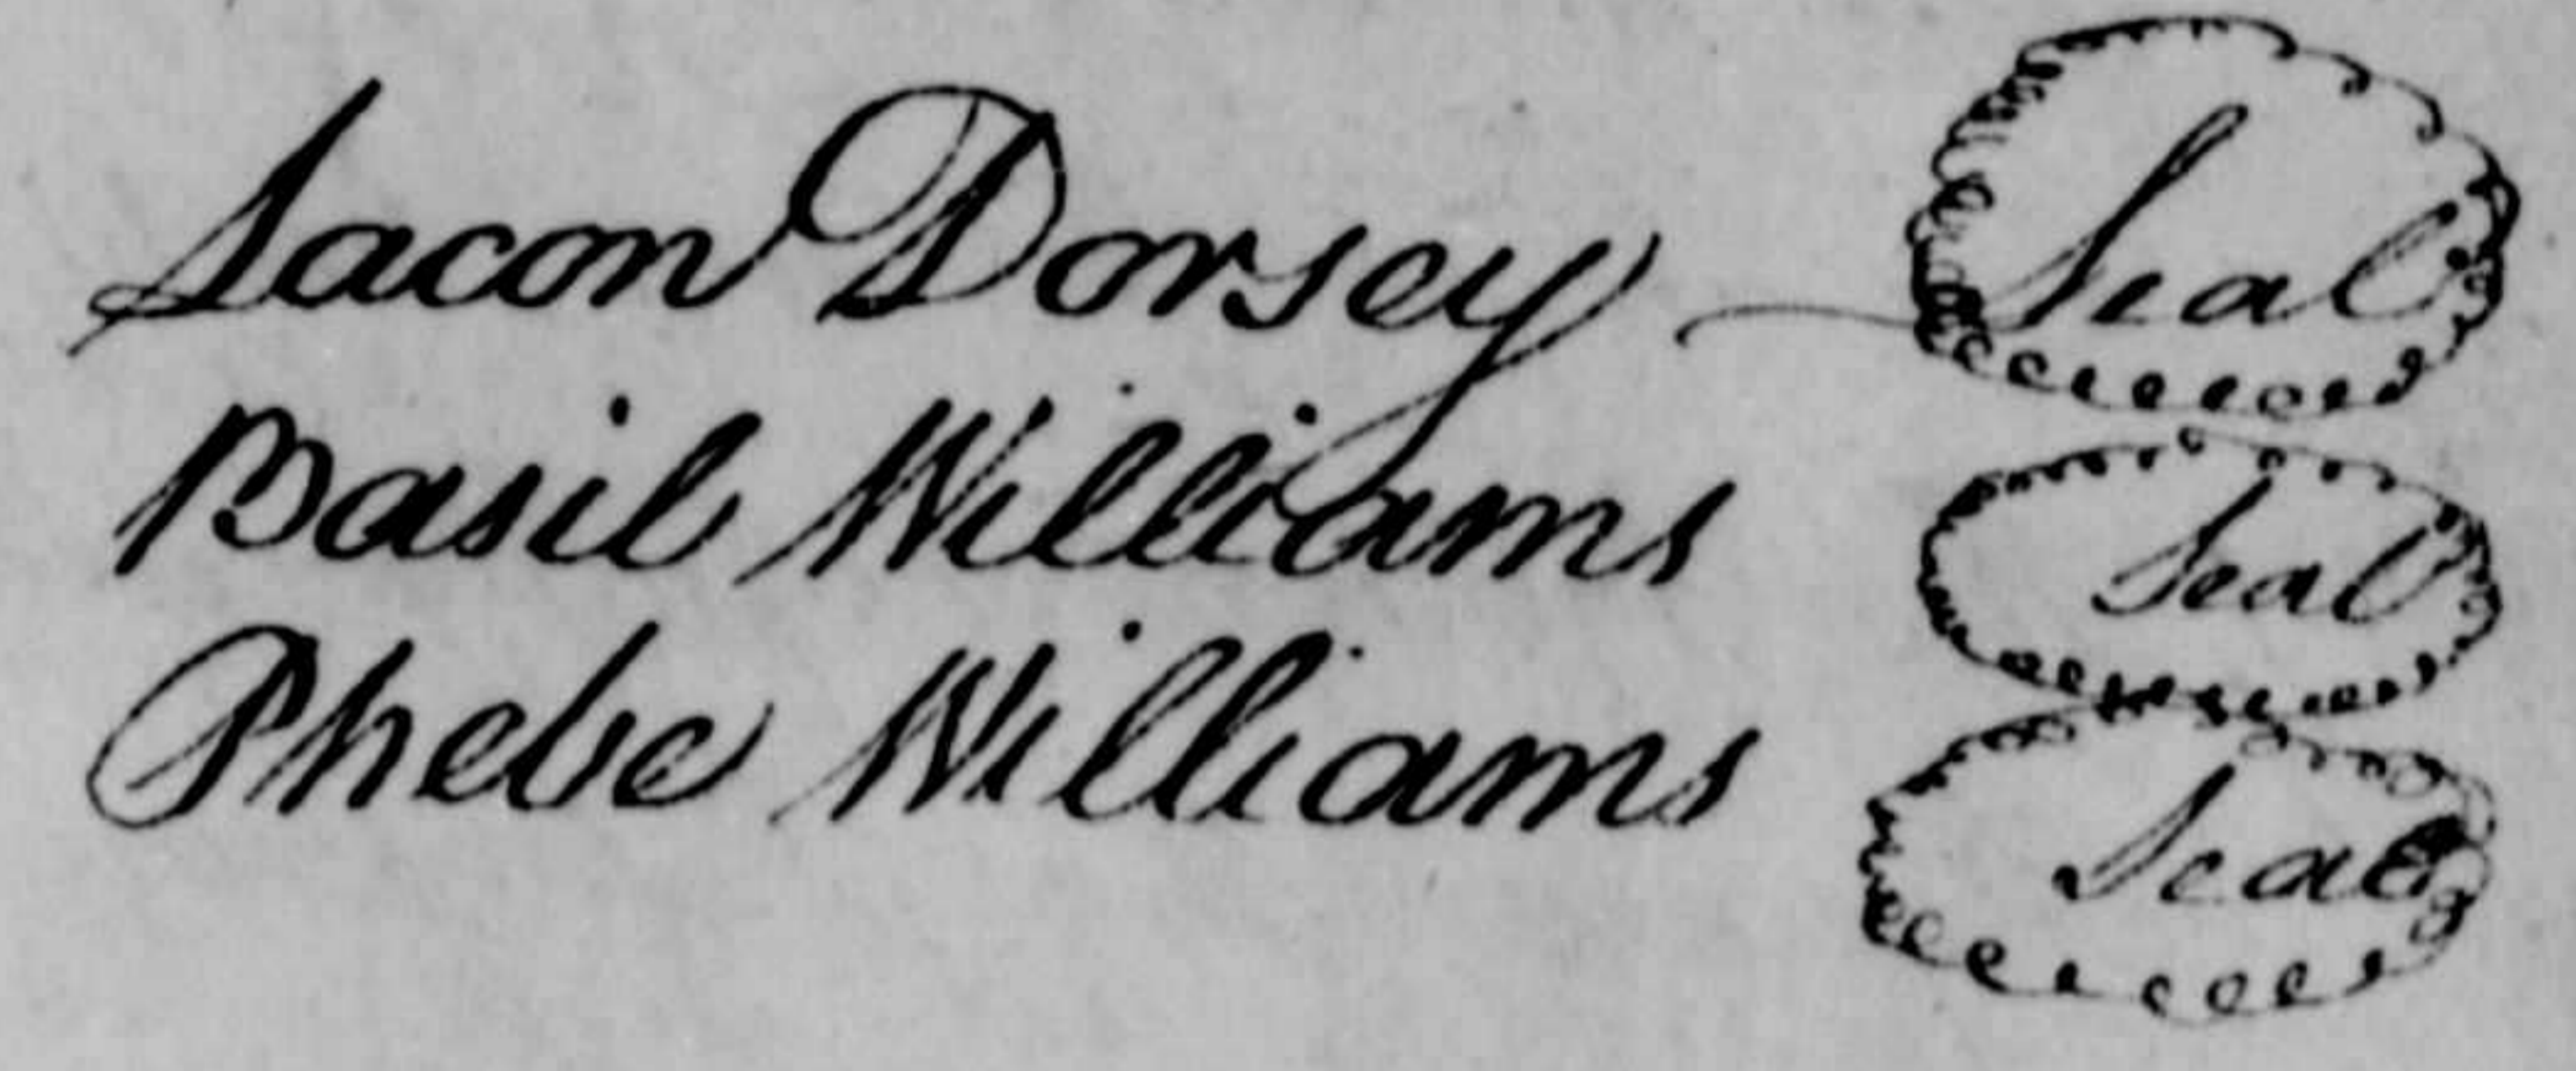 Lacon Dorsey Seal
Basil Williams Seal
Phebe Williams Seal